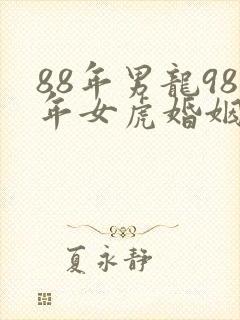 88年男龍98
年女虎婚姻
夏永靜